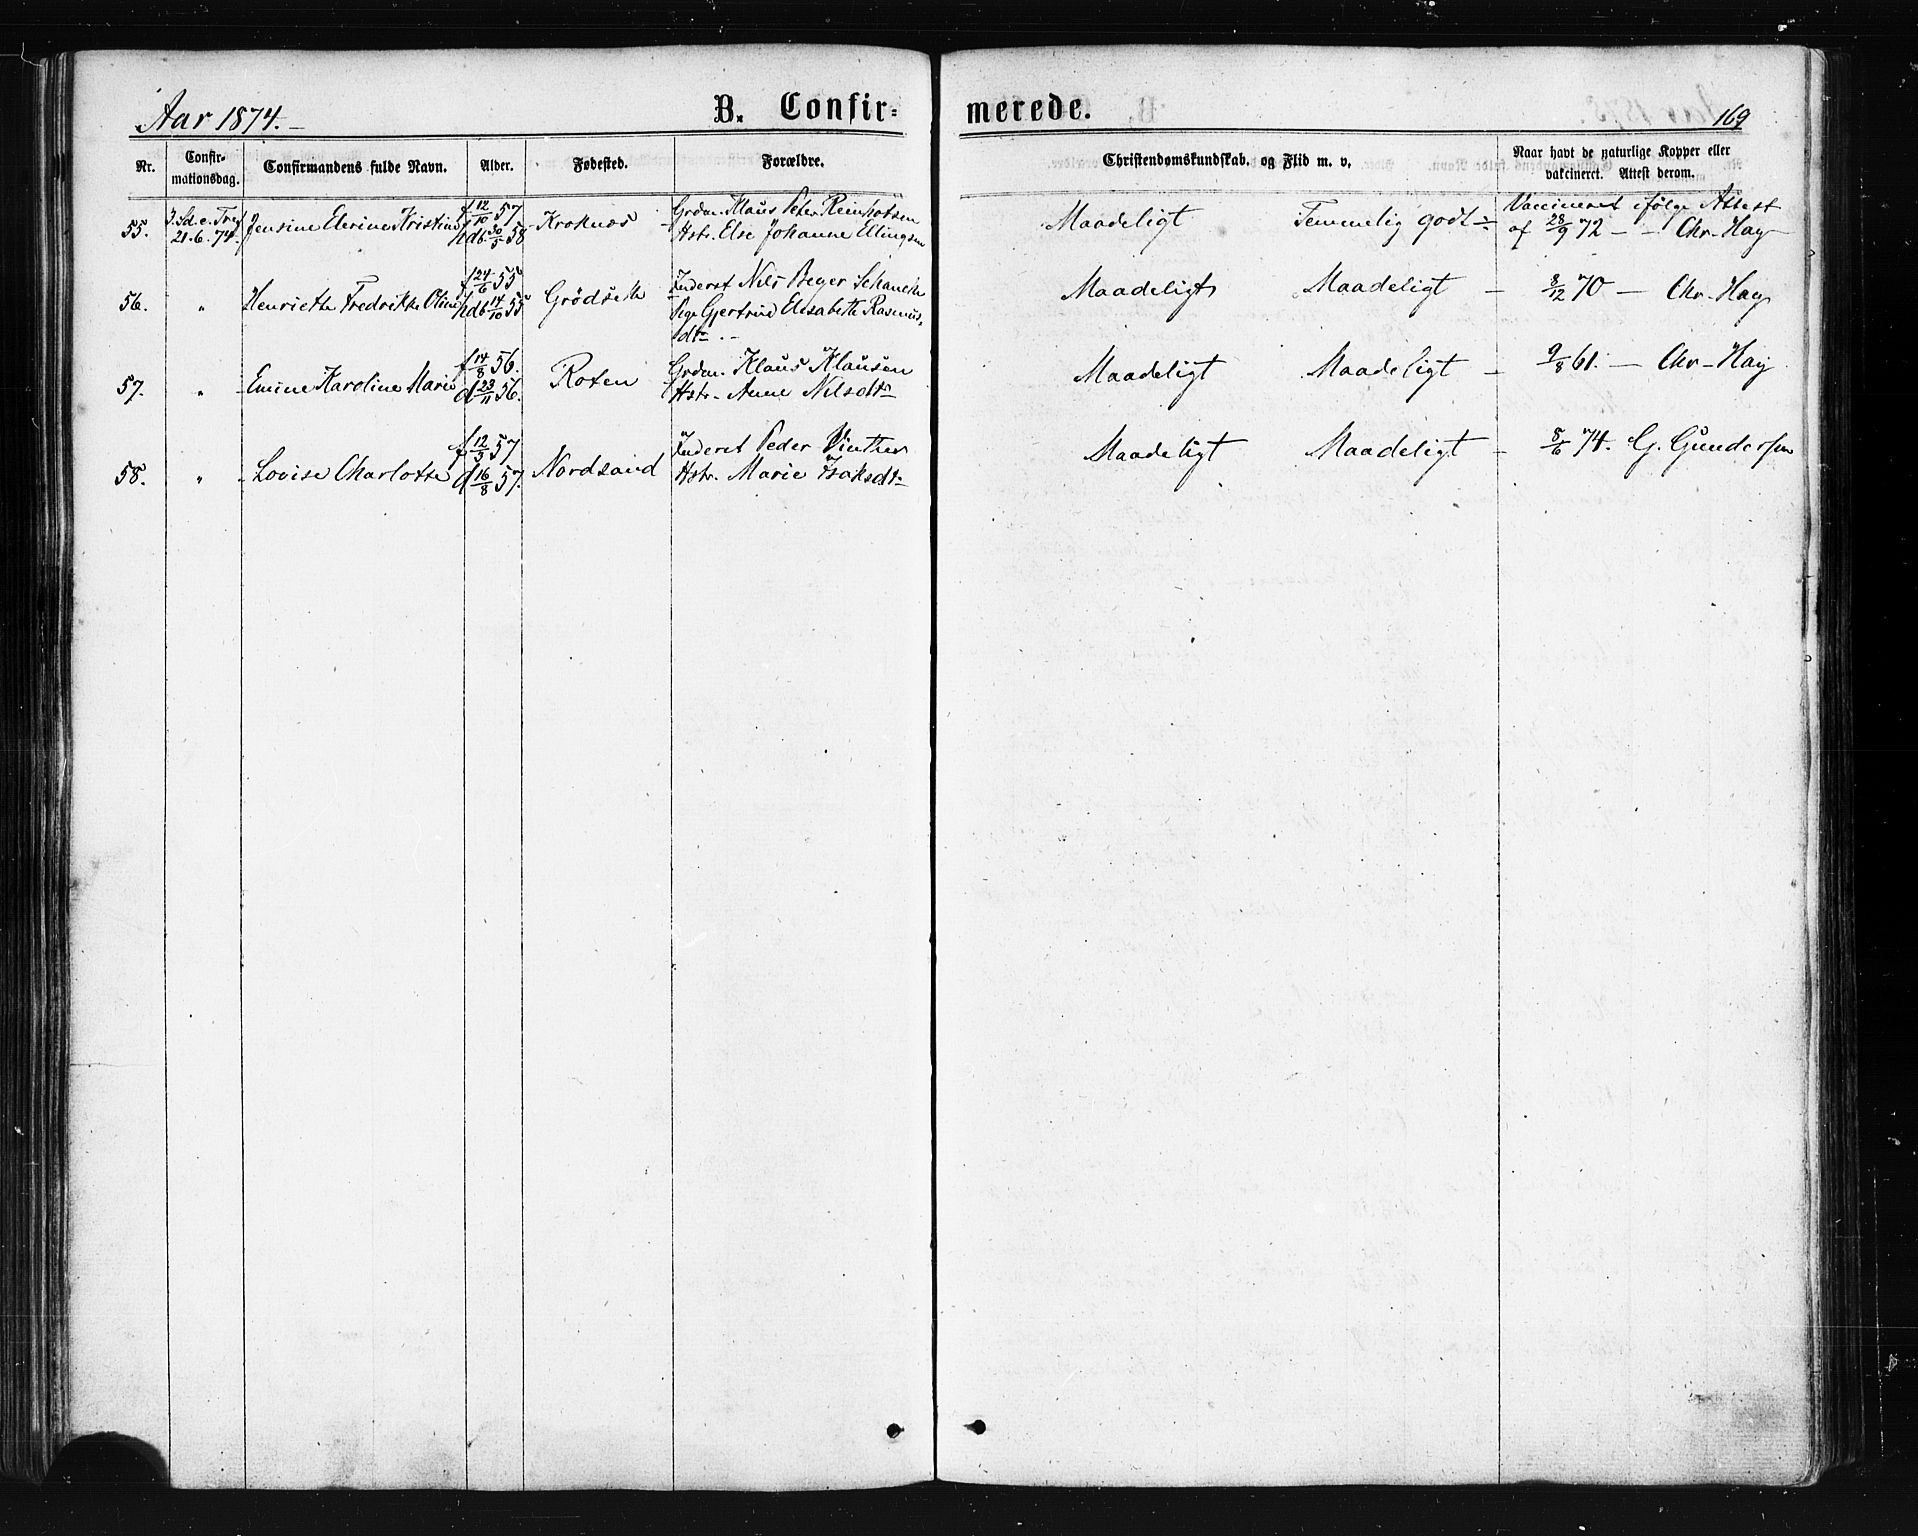 Aar 1874.
B. Confir=
merede.
169
Nr.
Confir-
mationsdag.
Confirmandens fulde Navn.
Alder.
Fødested.
Forældre.
Christendomskundskab. og Flid m. v.
Naar havt de naturlige Kopper eller
vakcineret. Attest derom.
55.
3. Sd. e. Tref.
21.6.74.
Jensine Elerine Kristine
f 12/10 57.
hdb 30/5 58
Kroknæs
Grdm. Klaus Peter Reinholtsen
Hstr. Else Johanne Ellingsen
Maadeligt
Temmelig godt
Vaccineret ifølge Attest
af 28/9 72 - - Chr. Hay
56.
"
Henriette Fredrikke Oline
f 24/6 55
hdb 14/10 55
Grødseth
Inderst Nils Beyer Schanche
Pige Gjertrud Elisabeth Rasmus-
dtr -
Maadeligt
Maadeligt -
8/12 70 - Chr. Hay
57.
"
Emine Karoline Marie
f 14/8 56.
d 23/11 56.
Roten
Grdm. Klaus Klausen
Hstr. Anne Nilsdtr
Maadeligt
Maadeligt -
9/8 61. - Chr - Hay
58.
"
Lovise Charlotte
f 12/5 57
d 16/8 57.
Nordsand
Inderst Peder Vinther
Hstr. Marie Isaksdtr
Maadeligt
Maadeligt -
5/6 74. G. Gundersen